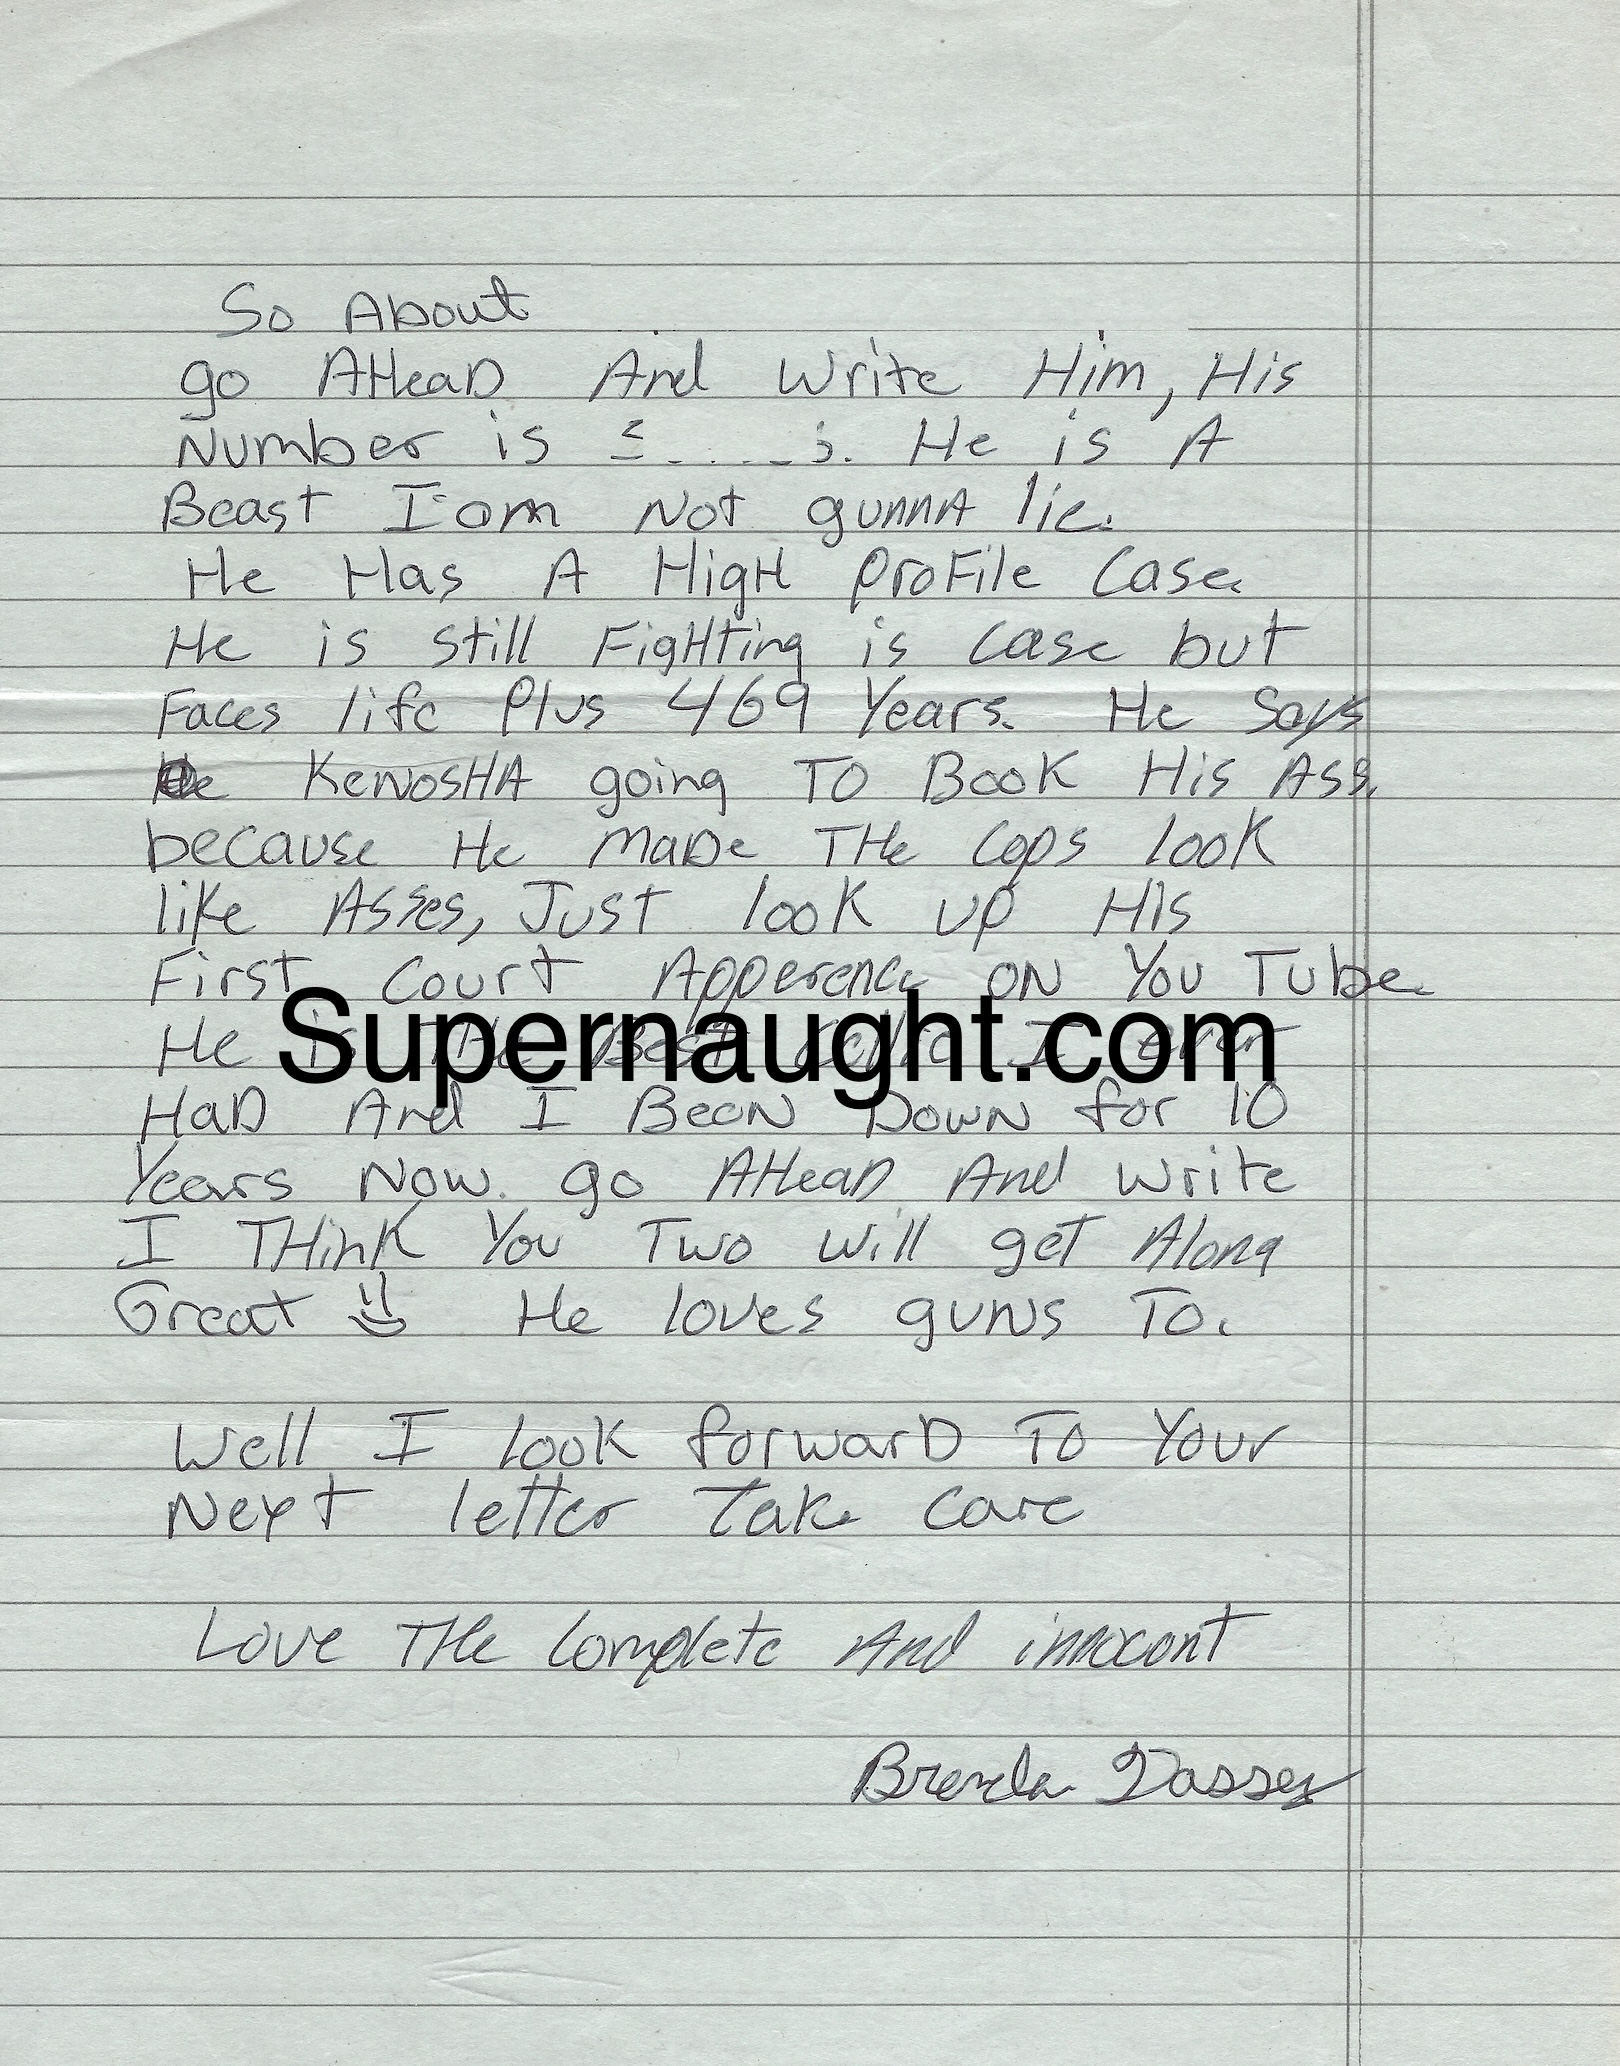 So About
go AHeaD And Write Him, His
Number is He is A
Beast I am Not gunnA lie.
He Has A HigH ProFile Case.
He is still FigHting is Case but
Faces life Plus 469 Years. He Says
KenosHA going To Book His Ass.
because He maDe THe Cops look
like Asses, Just look up His
First Court Apperence on You Tube.
He is THe Best I ever
Supernaught.com
HaD And I Been Down for 10
Years Now. go AHeaD And Write
I THink You Two Will get Along
Great He loves guns To.
Well I look forwarD To Your
Next letter Take Care
Love THe Complete And innocent